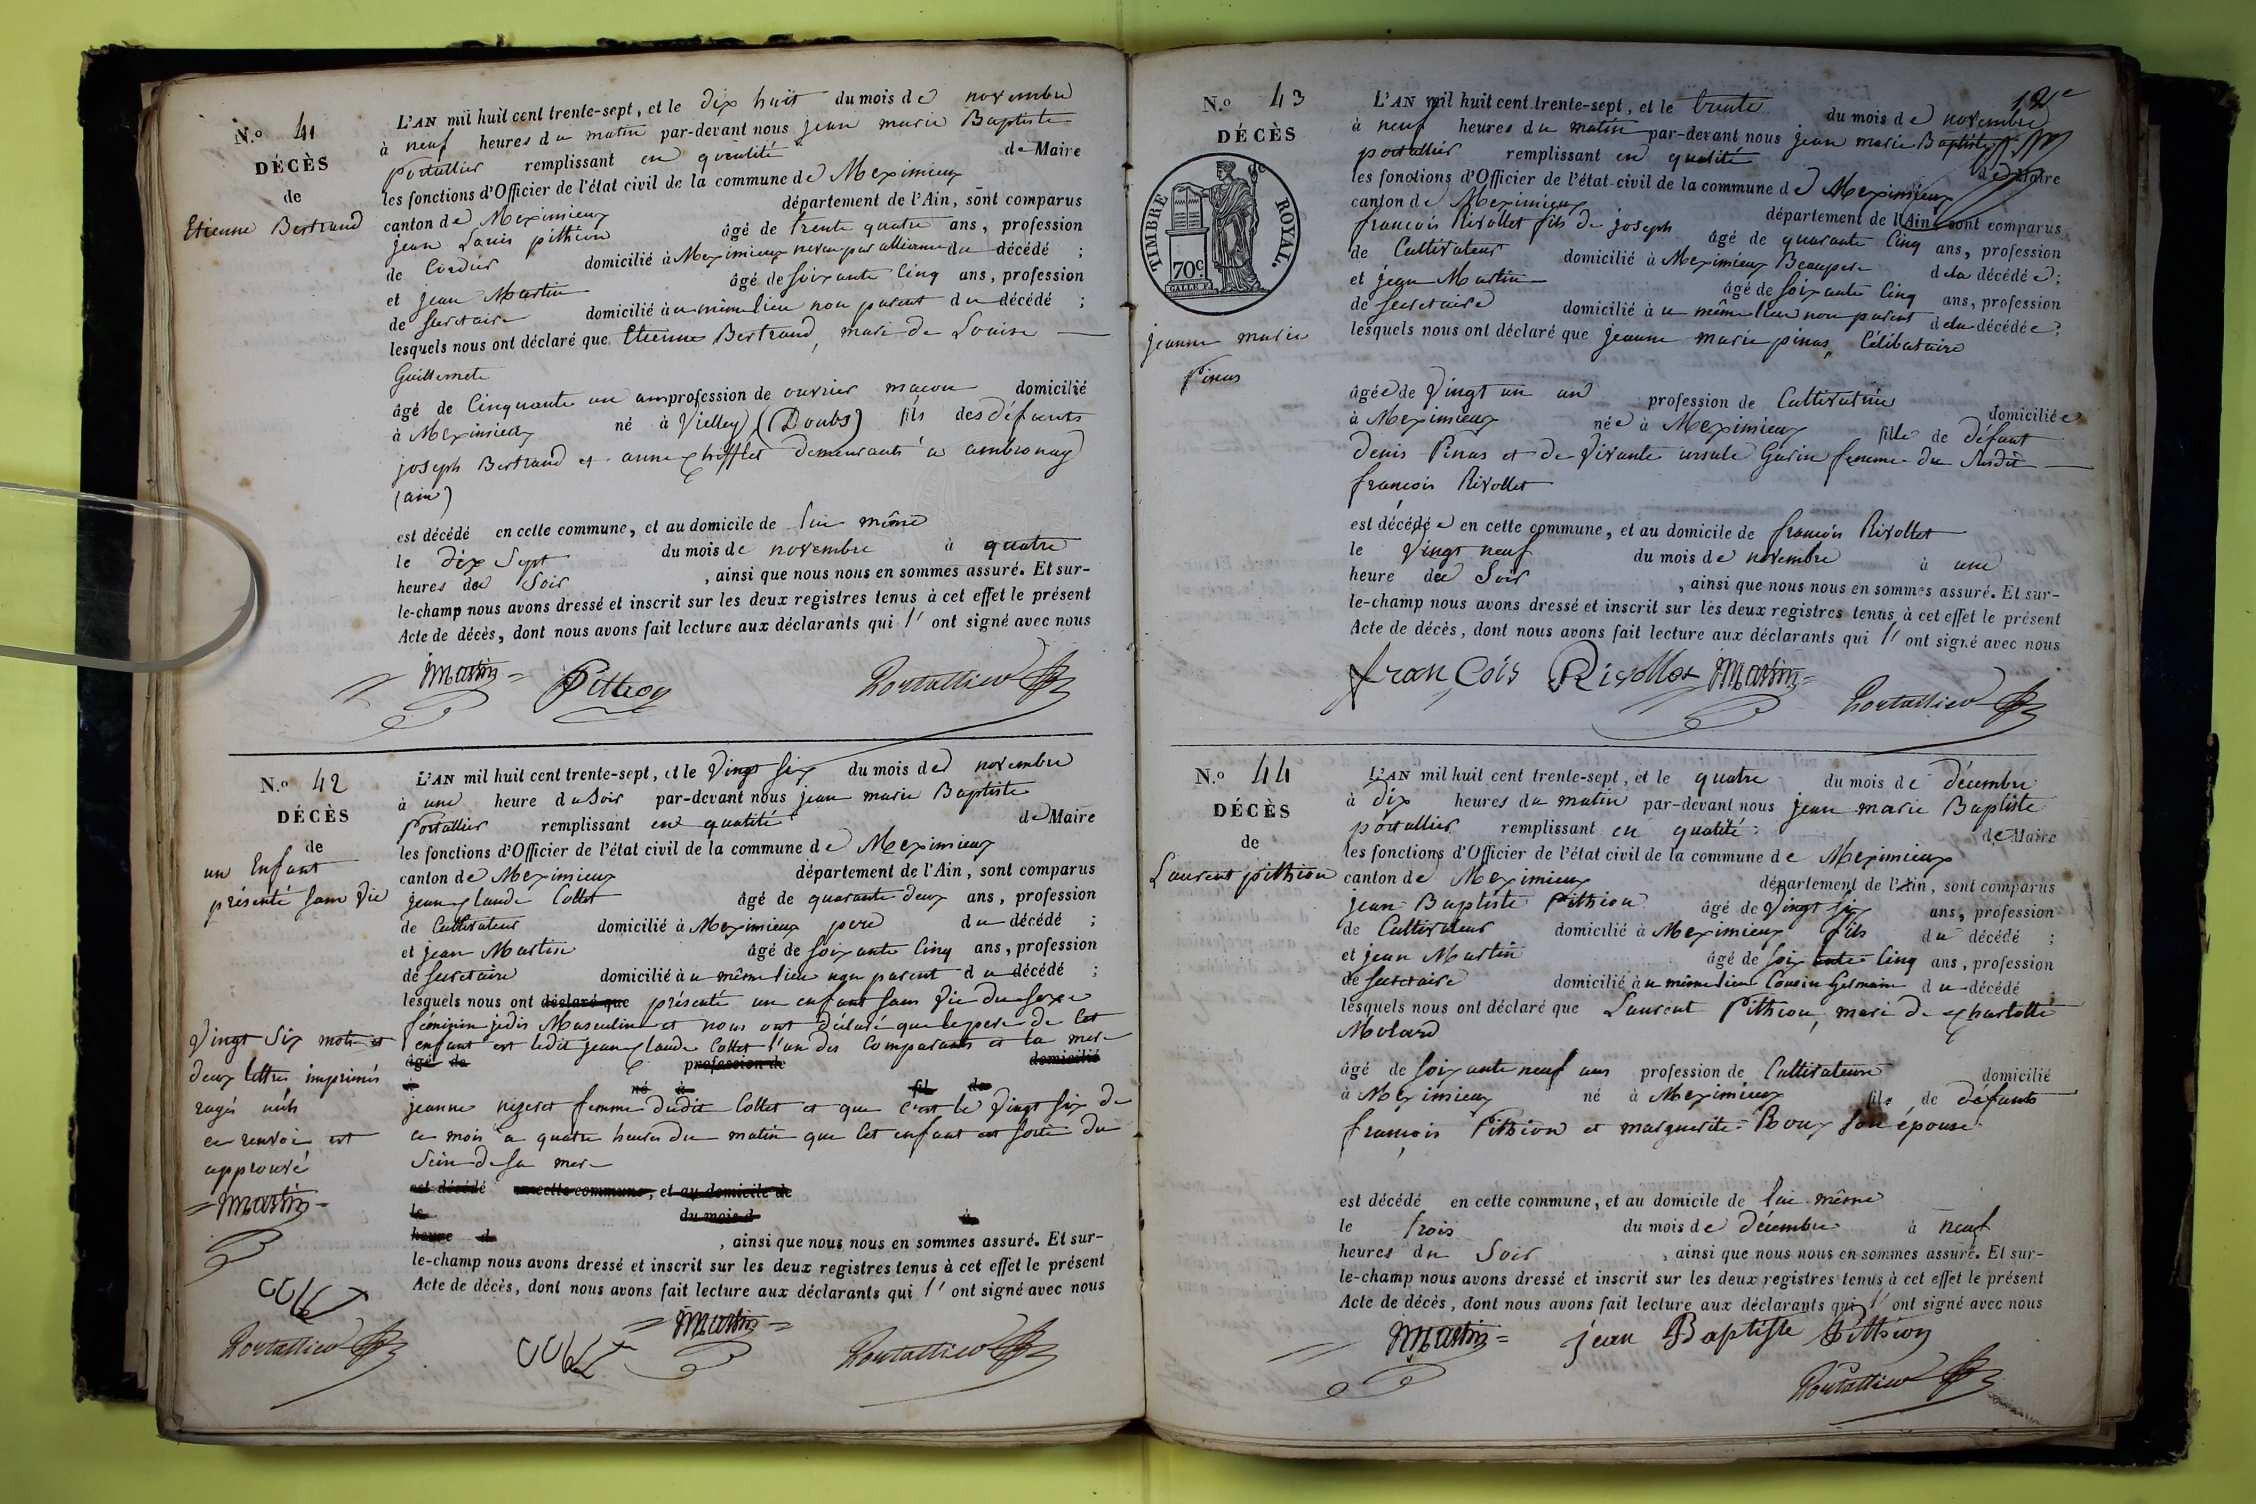 N.º 41
DÉCÈS
de
Etienne Bertrand
L'AN mil huit cent trente-sept, et le dix huit du mois de novembre
à neuf heures du matin par-devant nous jean marie Baptiste
Portallier remplissant en qualité de Maire
les fonctions d'Officier de l'état civil de la commune de Meximieux
canton de Meximieux département de l'Ain, sont comparus
jean Louis pithion âgé de trente quatre ans, profession
de Cordier domicilié à Meximieux neveu par alliance du décédé ;
et jean Martin âgé de soixante Cinq ans, profession
de Secretaire domicilié au même lieu non parent du décédé ;
lesquels nous ont déclaré que Etienne Bertrand, mari de Louise
Guillemete
âgé de Cinquante un ans profession de ouvrier macon domicilié
à Meximieux né à Vielley (Doubs) fils des défunts
joseph Bertrand et anne Chifflet demeurants a ambronay
(ain)
est décédé en cette commune, et au domicile de lui même
le dix Sept du mois de novembre à quatre
heures du Soir , ainsi que nous nous en sommes assuré. Et sur-
le-champ nous avons dressé et inscrit sur les deux registres tenus à cet effet le présent
Acte de décès, dont nous avons fait lecture aux déclarants qui l' ont signé avec nous
Martin Pithion Portallier
N.º 42
DÉCÈS
de
un Enfant
présenté sans Vie
L'AN mil huit cent trente-sept, et le Vingt six du mois de novembre
à une heure du Soir par-devant nous jean marie Baptiste
Portallier remplissant en qualité de Maire
les fonctions d'Officier de l'état civil de la commune de Meximieux
canton de Meximieux département de l'Ain, sont comparus
jean Claude Collet âgé de quarante deux ans, profession
de Cultivateur domicilié à Meximieux pere du décédé ;
et jean Martin âgé de soixante Cinq ans, profession
de Secretaire domicilié au même lieu non parent du décédé ;
lesquels nous ont déclaré que présenté un enfant sans Vie du sexe
féminin jedis Masculin et nous ont déclaré que le pere de Cet
enfant est ledit jean Claude Collet l'un des Comparants et la mere
âgé de profession de domicilié
à né à fil de
jeanne nizeret femme dudit Collet et que C'est le Vingt six de
ce mois a quatre heures du matin que Cet enfant est sorti du
Sein de sa mere
est décédé en cette commune, et au domicile de
le du mois d à
heure d , ainsi que nous nous en sommes assuré. Et sur-
le-champ nous avons dressé et inscrit sur les deux registres tenus à cet effet le présent
Acte de décès, dont nous avons fait lecture aux déclarants qui l' ont signé avec nous
Vingt Six mots et
deux lettres imprimés
rayés nuls
ce renvoi est
approuvé
Martin
Collet
Portallier
Martin
Collet Portallier
12e
N.º 43
DÉCÈS
de
TIMBRE ROYAL.
70c.
jeanne marie
Pinus
L'AN mil huit cent trente-sept, et le trente du mois de novembre
à neuf heures du matin par-devant nous jean marie Baptiste
portallier remplissant en qualité de Maire
les fonctions d'Officier de l'état-civil de la commune de Meximieux
canton de Meximieux département de l'Ain, sont comparus
francois Rivollet fils de joseph âgé de quarante Cinq ans, profession
de Cultivateur domicilié à Meximieux Beaupere dela décédée ;
et jean Martin âgé de soixante Cinq ans, profession
de Secretaire domicilié au même lieu non parent dela décédée ;
lesquels nous ont déclaré que jeanne marie pinus, Célibataire
âgée de Vingt un an profession de Cultivatrice domiciliée
à Meximieux née à Meximieux fille de défunt
Denis Pinus et de Vivante ursule Guerin femme du Susdit
francois Rivollet
est décédée en cette commune, et au domicile de francois Rivollet
le Vingt neuf du mois de novembre à une
heure du Soir , ainsi que nous nous en sommes assuré. Et sur-
le-champ nous avons dressé et inscrit sur les deux registres tenus à cet effet le présent
Acte de décès, dont nous avons fait lecture aux déclarants qui l' ont signé avec nous
françois Rivollet Martin
Portallier
N.º 44
DÉCÈS
de
Laurent pithion
L'AN mil huit cent trente-sept, et le quatre du mois de décembre
à dix heures du matin par-devant nous jean marie Baptiste
portallier remplissant en qualité de Maire
les fonctions d'Officier de l'état civil de la commune de Meximieux
canton de Meximieux département de l'Ain, sont comparus
jean Baptiste Pithion âgé de Vingt six ans, profession
de Cultivateur domicilié à Meximieux fils du décédé ;
et jean Martin âgé de soixante Cinq ans, profession
de Secretaire domicilié au même lieu Cousin Germain du décédé
lesquels nous ont déclaré que Laurent Pithion, mari de Charlotte
Molard
âgé de soixante neuf ans profession de Cultivateur domicilié
à Meximieux né à Meximieux fils de défunts
francois Pithion et marguerite Roux son épouse
est décédé en cette commune, et au domicile de lui même
le trois du mois de décembre à neuf
heures du Soir , ainsi que nous nous en sommes assuré. Et sur-
le-champ nous avons dressé et inscrit sur les deux registres tenus à cet effet le présent
Acte de décès, dont nous avons fait lecture aux déclarants qui l' ont signé avec nous
Martin jean Baptiste Pithion
Portallier